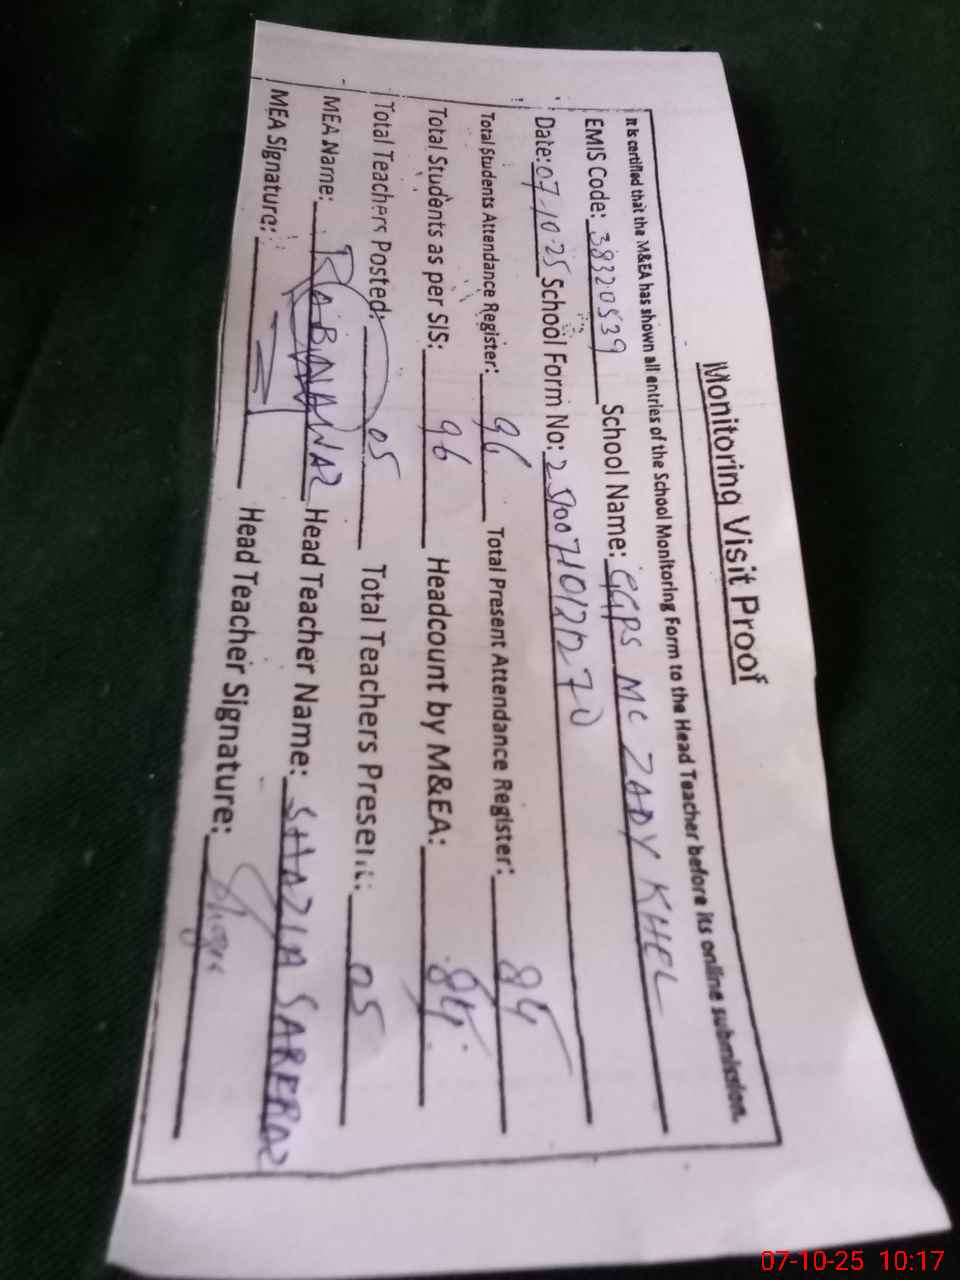 Monitoring Visit Proof
It is certified that the M&EA has shown all entries of the School Monitoring Form to the Head Teacher before its online submission.
EMIS Code: 38320539 School Name: GGPS MC ZADY KHEL
Date: 07-10-25 School Form No:
Total Students Attendance Register: 96 Total Present Attendance Register: 84
Total Students as per SIS: 96 Headcount by M&EA: 84
Total Teachers Posted: 05 Total Teachers Present: 05
MEA Name: RAB NAWAZ Head Teacher Name: SHAZIA
MEA Signature: Head Teacher Signature:
07-10-25 10:17